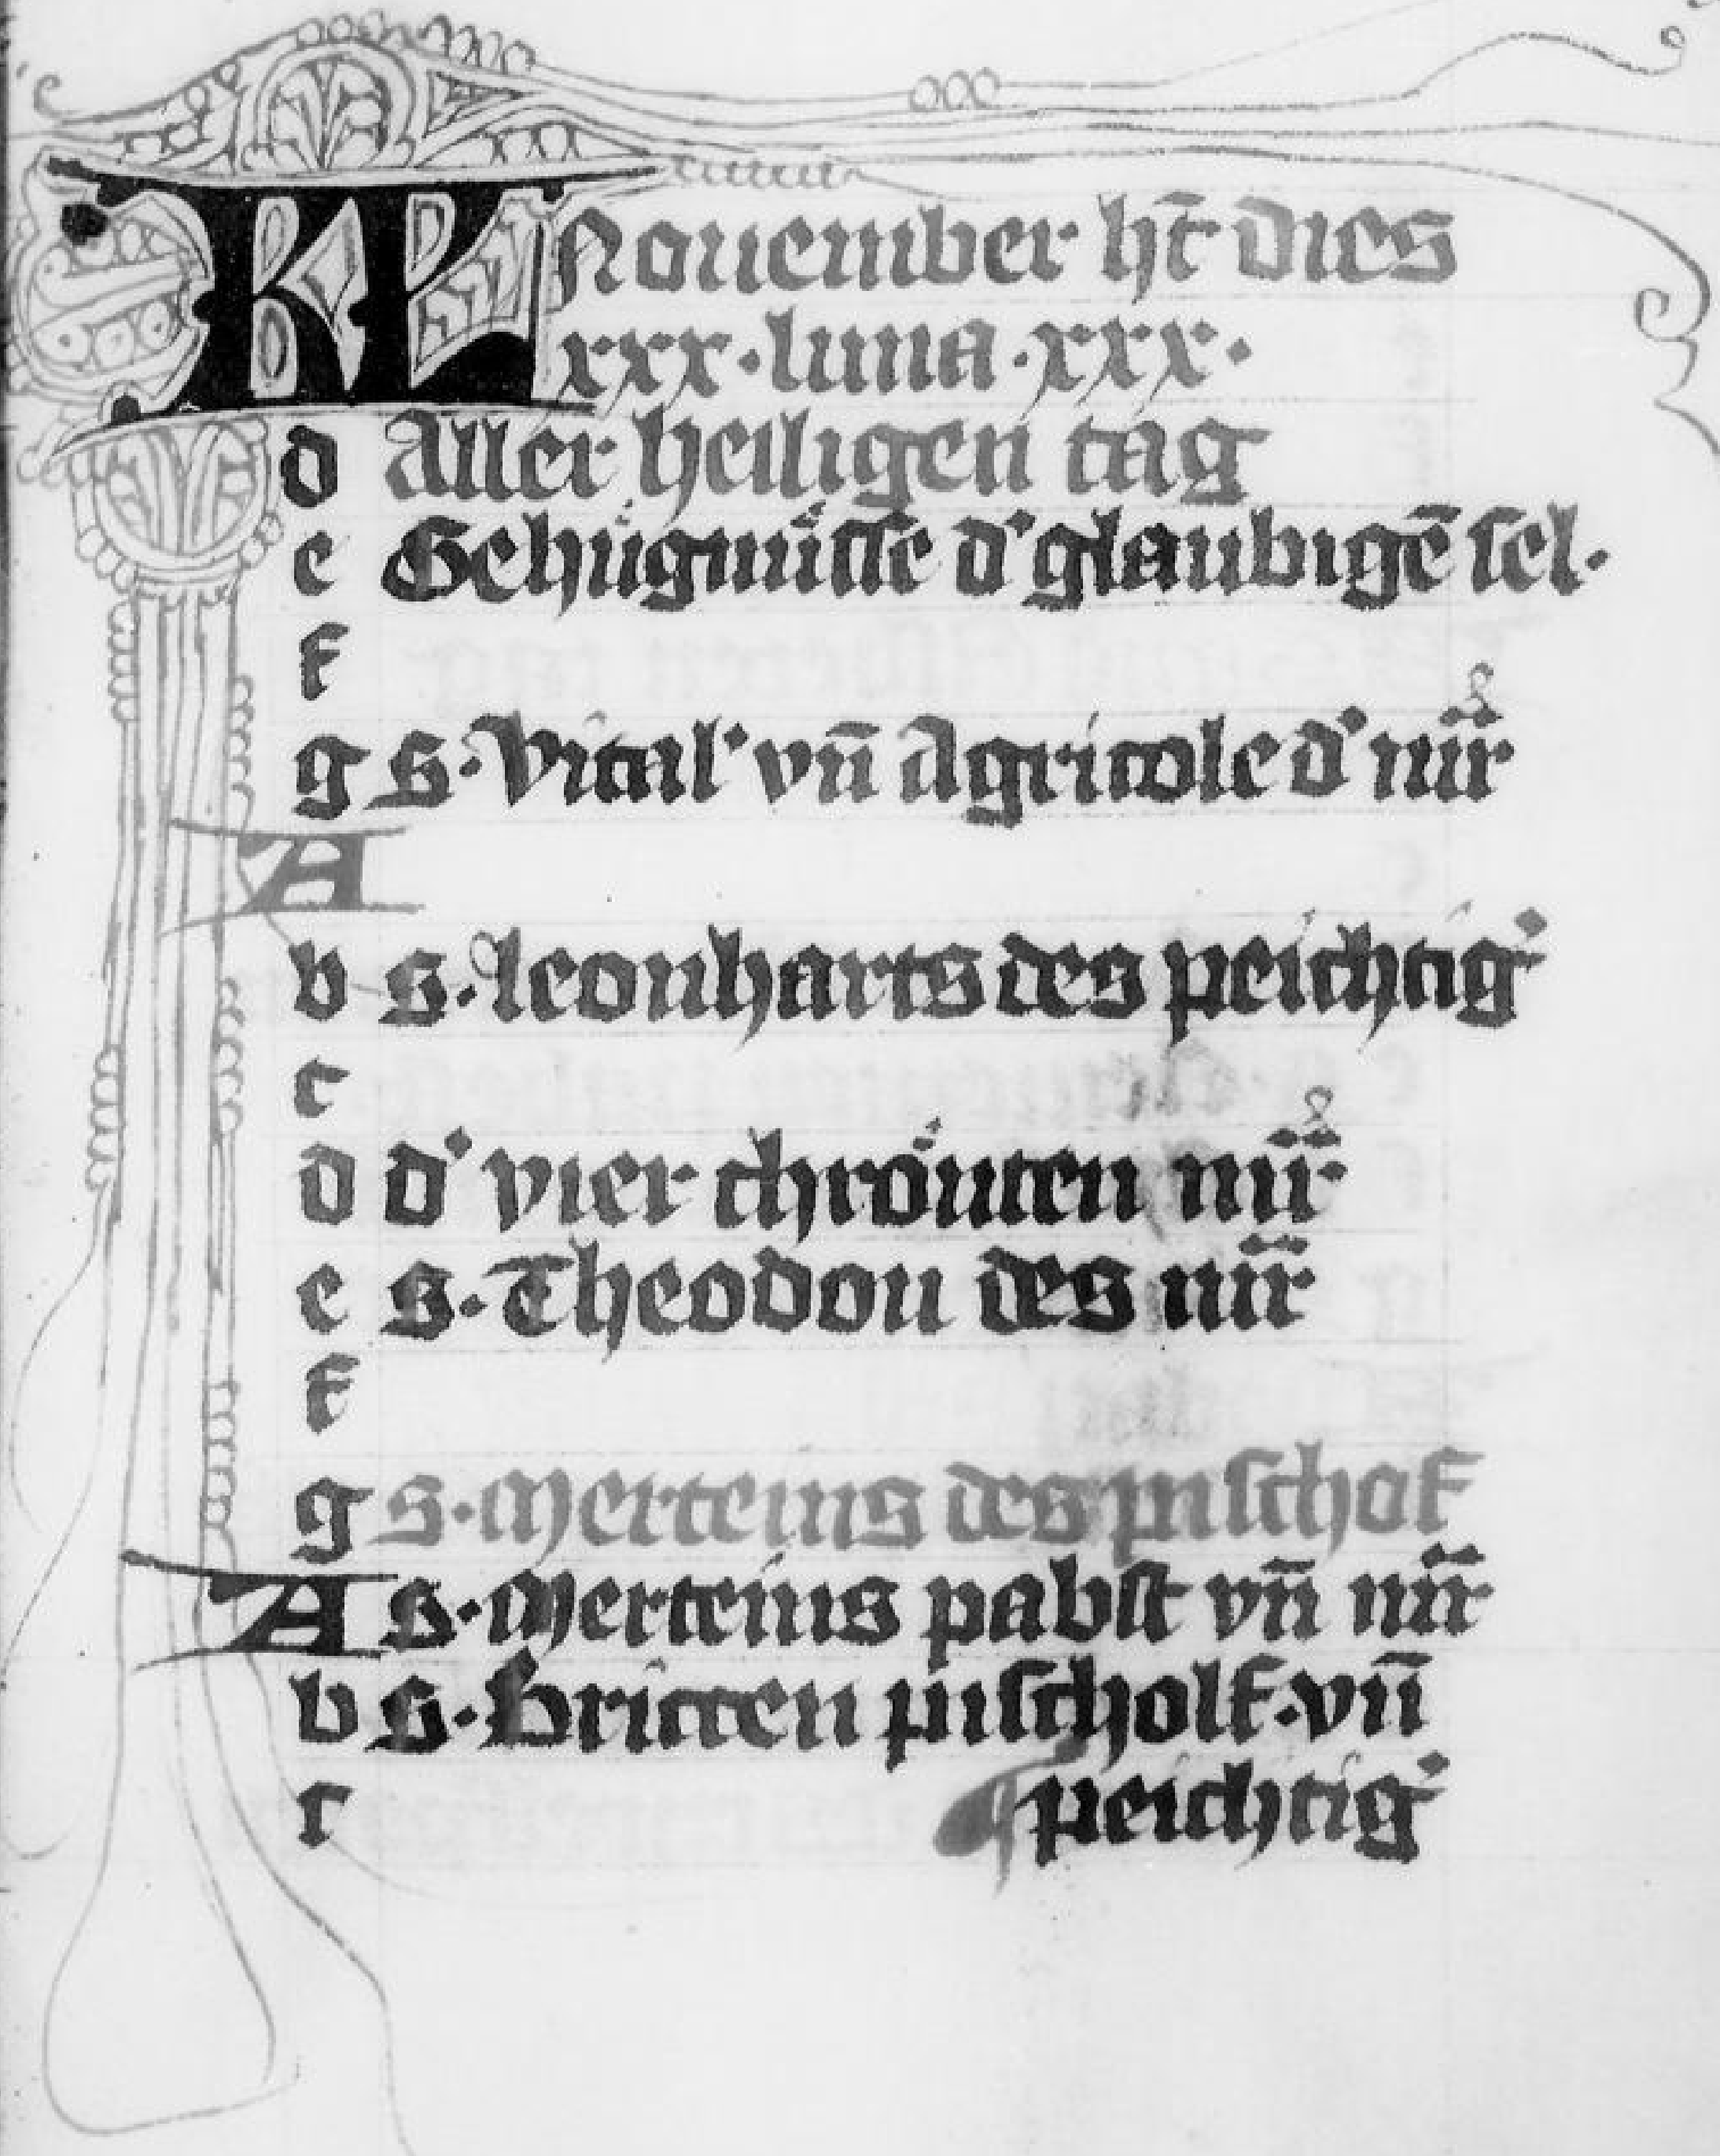 KL Nouember ht̄ dies
xxx · luna · xxx ·
d Aller heiligen tag
e Gehùgnüsse d' glaubigē sel·
f
g S· Vital' vn̄ Agricole d' mr̈r
A
b S· leonharts des peichtig'
c
d d' vier chrönten mr̈r
e S· Theodori des mr̈r
f
g S· Merteins des pischof
A S· Merteins pabst vn̄ mr̈r
b S· Briccen pischolf· vn̄
c peichtig'